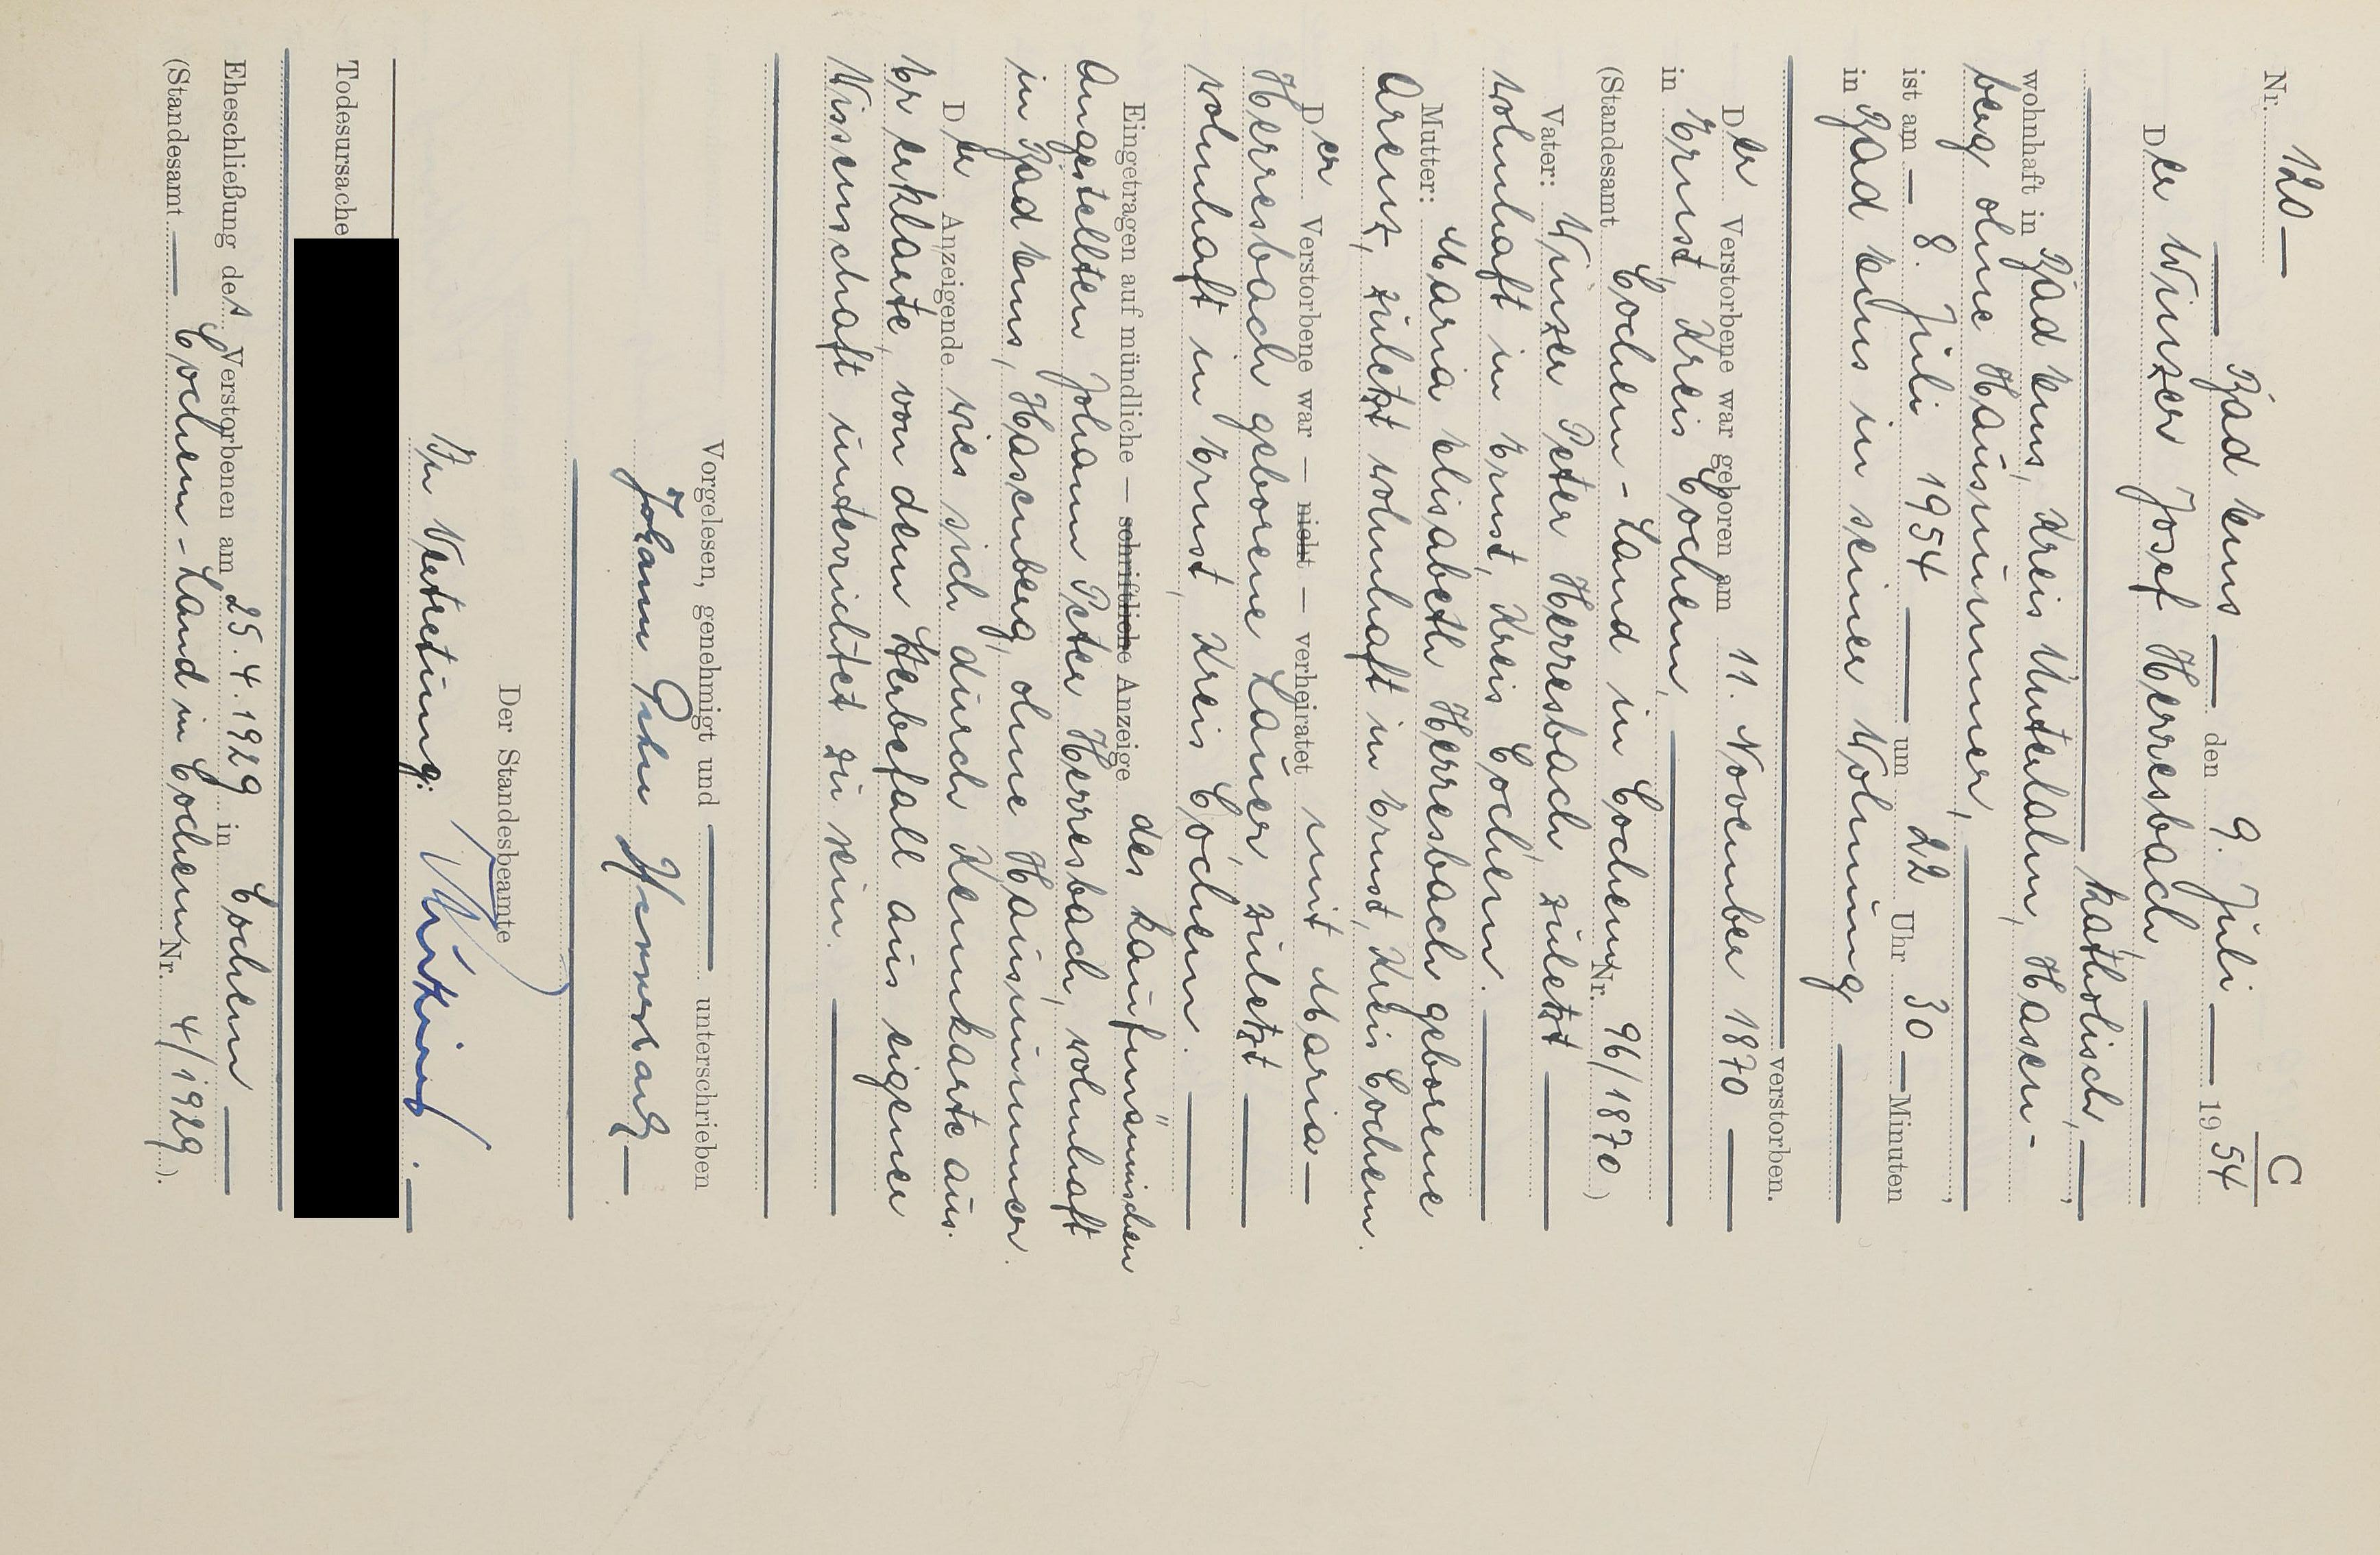 C
Nr. 120
Bad Ems den 9. Juli 1954
Der Winzer Josef Herresbach
katholisch,
wohnhaft in Bad Ems, Kreis Unterlahn, Hasen-
berg ohne Hausnummer,
ist am 8. Juli 1954 um 22 Uhr 30 Minuten
in Bad Ems in seiner Wohnung
verstorben.
Der Verstorbene war geboren am 11. November 1870
in Ernst, Kreis Cochem,
(Standesamt Cochem-Land in Cochem Nr. 96/1870)
Vater: Winzer Peter Herresbach, zuletzt
wohnhaft in Ernst, Kreis Cochem.
Mutter: Maria Elisabeth Herresbach geborene
Arenz, zuletzt wohnhaft in Ernst, Kreis Cochem.
Der Verstorbene war — nicht — verheiratet mit Maria
Herresbach geborene Laner, zuletzt
wohnhaft in Ernst, Kreis Cochem.
Eingetragen auf mündliche — schriftliche Anzeige des kaufmännischen
Angestellten Johann Peter Herresbach, wohnhaft
in Bad Ems, Hasenberg, ohne Hausnummer.
Der Anzeigende wies sich durch Kennkarte aus.
Er erklärte, von dem Sterbefall aus eigener
Wissenschaft unterrichtet zu sein.
Vorgelesen, genehmigt und unterschrieben
Johann Peter Herresbach
Der Standesbeamte
In Vertretung:
Todesursache
Eheschließung des Verstorbenen am 25.4.1929 in Cochem
(Standesamt Cochem-Land in Cochem Nr. 4/1929).